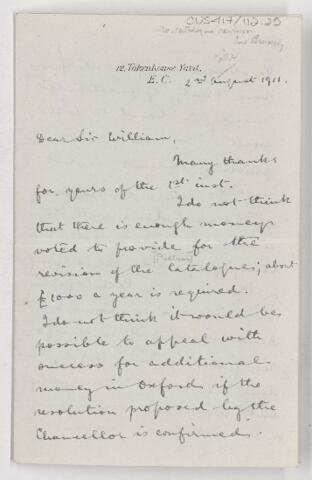 CUS417/112.25
12, Tokenhouse Yard,
E.C. 2nd August 1911.
Dear Sir William,
Many thanks
for yours of the 1st inst.
I do not think
that there is enough money
voted to provide for the
revision of the catalogues; about
£1000 a year is required.
I do not think it would be
possible to appeal with
success for additional
money in Oxford if the
resolution proposed by the
Chancellor is confirmed.